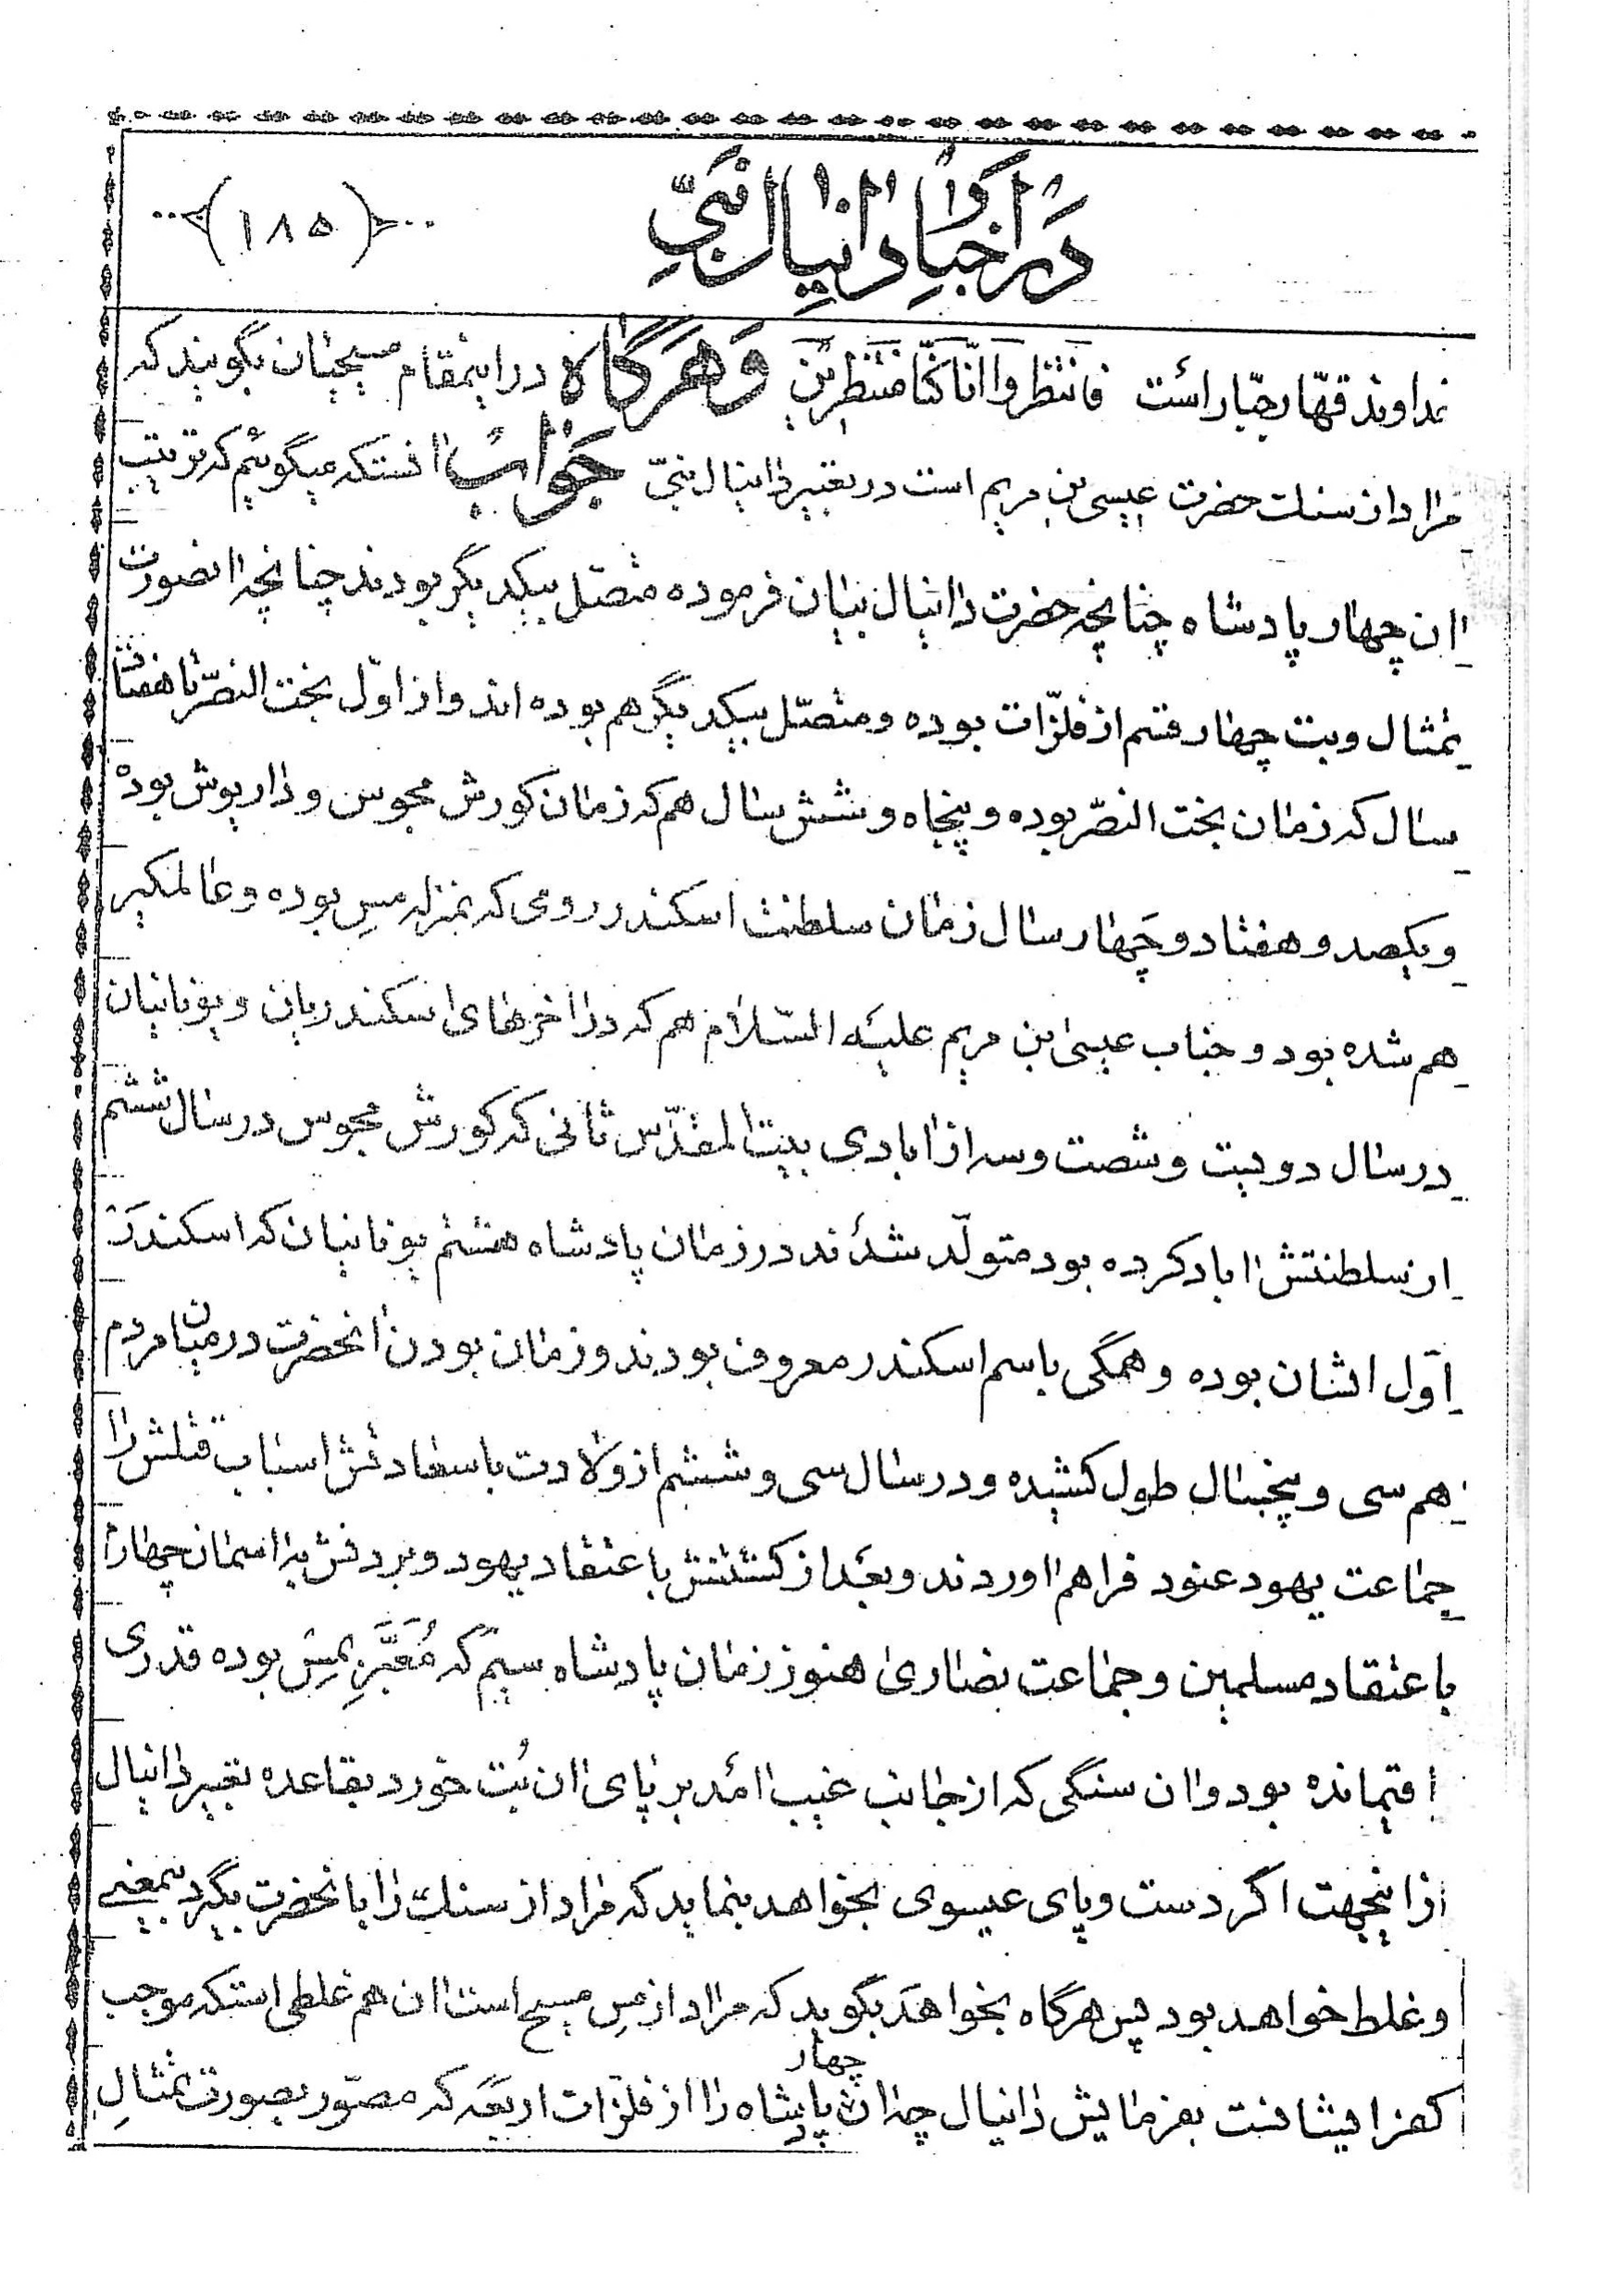 در اخبار دانیال نبی
(۱۸۵)
خداوند قهّار جبّار است فانتظروا انّا کنّا منتظرین وهرگاه در اینمقام مسیحیان بگویند که
مراد از سنك حضرت عیسی بن مریم است در تعبیر دانیال نبیّ جواب انستکه میگوئیم که ترتیب
ان چهار پادشاه چنانچه حضرت دانیال بیان فرموده متصّل بیکدیگر بودند چنانچه انصورت
تمثال و بت چهار قسم از فلزّات بوده و متصّل بیکدیگر هم بوده اند و از اوّل بخت النصّر تا هفتاد
سال که زمان بخت النصّر بوده و پنجاه و شش سال هم که زمان کورش مجوس و داریوش بوده
و یکصد و هفتاد و چهار سال زمان سلطنت اسکندر رومی که بمنزله مس بوده و عالمکیر
هم شده بود و جناب عیسی بن مریم علیه السّلام هم که در اخرهای اسکندریان و یونانیان
در سال دویست و شصت و سه از ابادی بیت المقدّس ثانی که کورش مجوس در سال ششم
از سلطنتش اباد کرده بود متولّد شدند در زمان پادشاه هشتم یونانیان که اسکندر
اوّل انشان بوده و همگی باسم اسکندر معروف بودند و زمان بودن انحضرت در میان مردم
هم سی و پنجسال طول کشیده و در سال سی و ششم از ولادت با سعادتش اسباب قتلش را
جماعت یهود عنود فراهم اوردند و بعد از کشتنش باعتقاد یهود و بردنش به اسمان چهارم
باعتقاد مسلمین و جماعت نصاری هنوز زمان پادشاه سیّم که مُعَبَّر بمس بوده قدری
باقیمانده بود و ان سنگی که از جانب غیب امد بر پای ان بُت خورد بقاعده تعبیر دانیال
از اینجهت اگر دست و پای عیسوی بخواهد بنماید که مراد از سنك را بانحضرت بگیرد بیمعنی
و غلط خواهد بود پس هرگاه بخواهد بگوید که مراد از مس مسیح است ان هم غلطی استکه موجب
کفر ایشانست بفرمایش دانیال چه ان چهار پادشاه را از فلزّات اربعه که مصّور بصورت تمثال